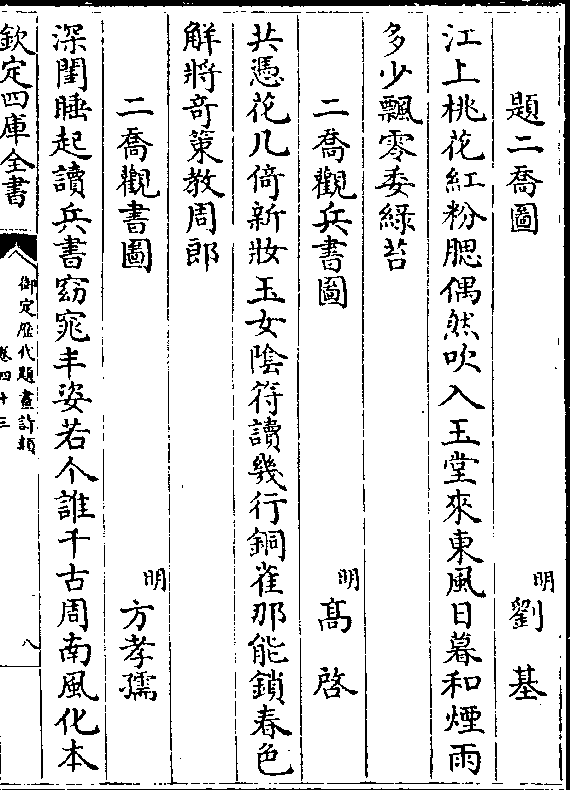 題二喬圖　明劉基
江上桃花紅粉腮偶然吹入玉堂來東風日暮和煙雨
多少飄零委綠苔
二喬觀兵書圖　明高啓
共憑花几倚新妝玉女陰符讀幾行銅雀那能鎖春色
解將奇策教周郎
二喬觀書圖　明方孝孺
深閨睡起讀兵書窈窕丰姿若个誰千古周南風化本
欽定四庫全書
御定歷代題畫詩類
卷四十三
八